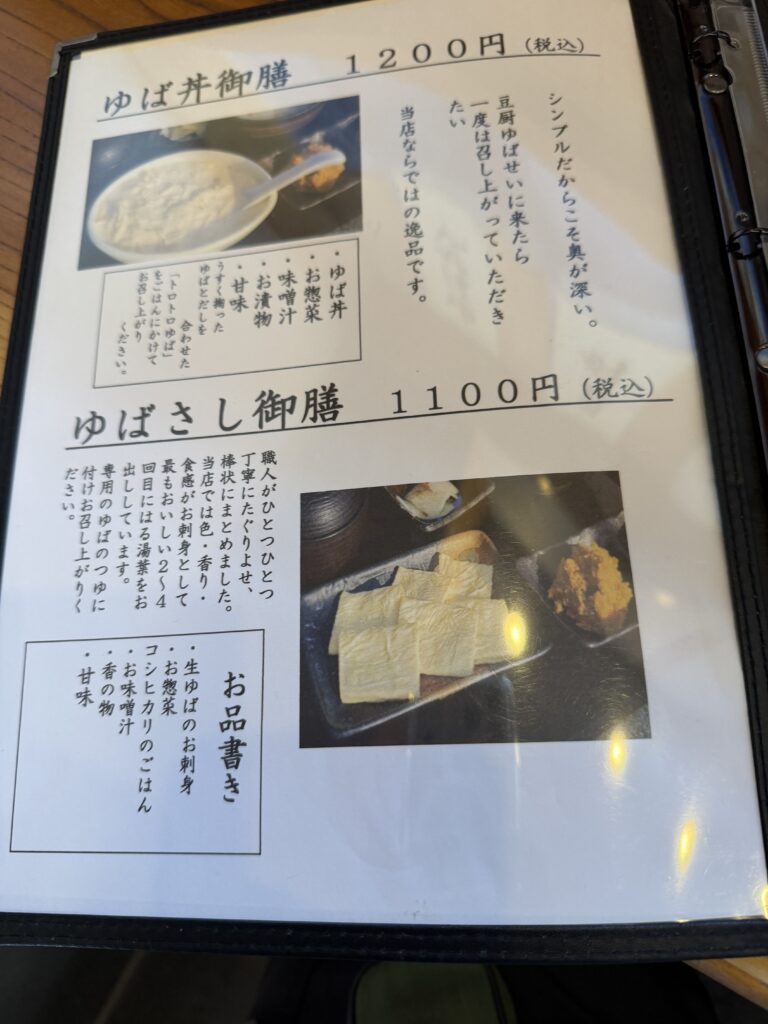 ゆば丼御膳　１２００円（税込）
シンプルだからこそ奥が深い。
豆厨ゆばせいに来たら
一度は召し上がっていただき
たい
当店ならではの逸品です。
・ゆば丼
・お惣菜
・味噌汁
・お漬物
・甘味
うすく掬った
ゆばとだしを
合わせた
「トロトロゆば」
をごはんにかけて
お召し上がり
ください。
ゆばさし御膳　１１００円（税込）
職人がひとつひとつ
丁寧にたぐりよせ、
棒状にまとめました。
当店では色・香り・
食感がお刺身として
最もおいしい２～４
回目にはる湯葉をお
出ししています。
専用のゆばのつゆに
付けお召し上がりく
ださい。
お品書き
・生ゆばのお刺身
・お惣菜
コシヒカリのごはん
・お味噌汁
・香の物
・甘味